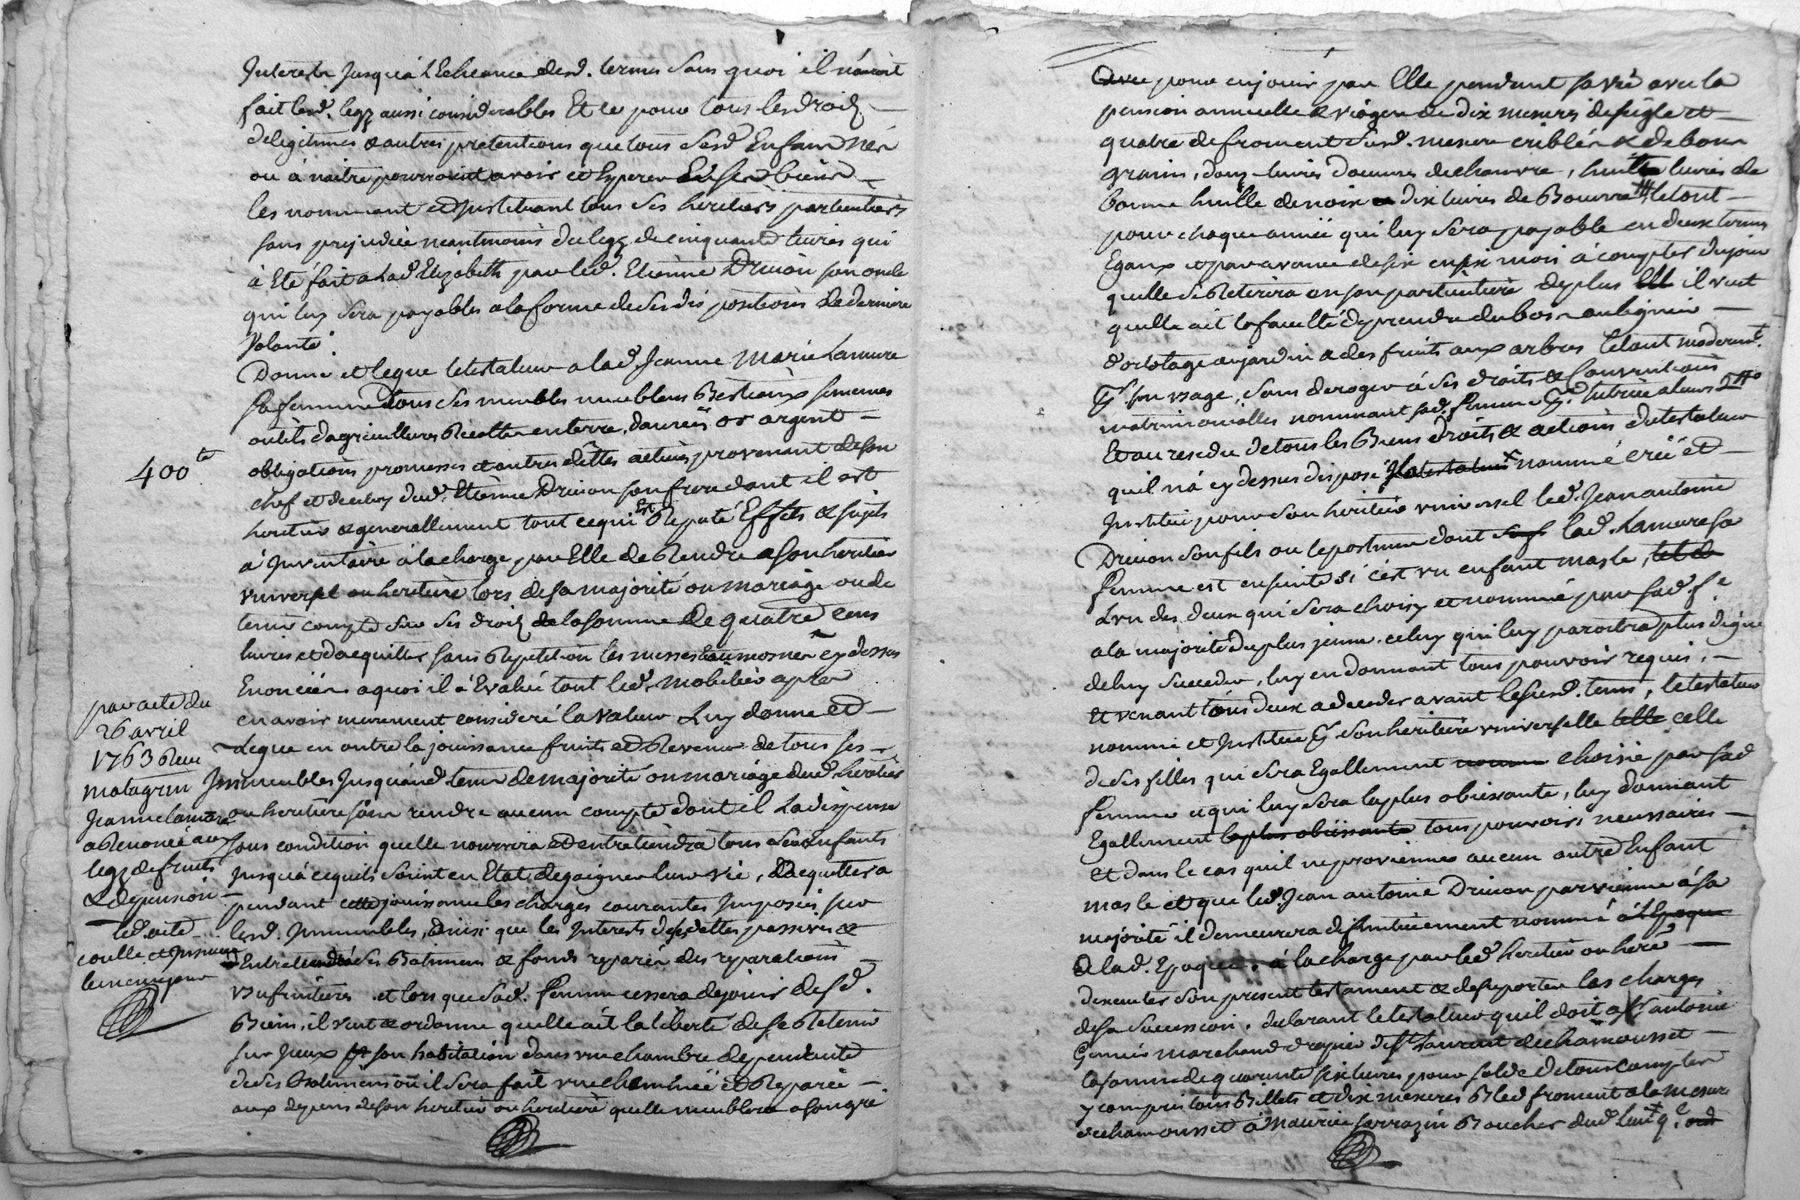 Interests jusqu'à l'Echeance desd. termes sans quoi il n'auroit
fait lesd. legz aussi considerables Et ce pour tous les droitz
de legitimes & autres pretentions que tous sesd Enfans nés
ou à naitre pourroient avoir et Esperer En sesd biens
les nommant et Instituant tous ses heritiers particuliers
sans prejudice neantmoins du legz de cinquante livres qui
à Eté fait a lad Elizabeth par led. Etienne Drivon son oncle
qui luy sera payables a la forme de ses dispositions de derniere
Volonté.
Donne et legue le testateur a lad. Jeanne Marie Lamure
sa femme tous ses meubles meublans Bestiaux semences
outils d'agricultures Recoltes en terre, danrées or argent
obligations promesses et autres dettes actives provenant de son
chef et de celuy dud. Etienne Drivon son frere dont il est
heritier & generallement tout ce qui Est Reputé Effets & sujets
à Inventaire à la charge par Elle de Rendre a son heritier
universel ou heritiere lors de sa majorité ou mariage ou de
tenir compte sur ses droitz de la somme de quatre cens
livres et d'acquitter sans Repetition les messes & aumosnes cy dessus
Enoncées a quoi il à Evalué tout led. Mobilier apres
en avoir murement consideré la valeur Luy donne et
Legue en outre la jouissance fruits et Revenus de tous ses
Immeubles jusqu'aud. tems de majorité ou mariage dud. heritier
ou heritiere sans rendre aucun compte dont il La dispense
sous condition quelle nourrira et entretiendra tous Leurs Enfants
jusqu'a ce quils soient en Etat de gaigner leur vie, d'acquitter a
pendant cette jouissance les charges courantes Imposées sur
lesd. Immeubles, ainsi que les Interests des dettes passives &
Entretiendra ses Batimens & fonds reparés des reparations
usufruitieres et lors que sad. femme cessera de jouir de sesd.
Biens, il veut & ordonne quelle ait la liberté de se Retenir
sur Iceux son habitation dans une chambre dependante
de ses Batimens où il sera fait une cheminée et Reparée
aux depens de son heritier ou heritiere quelle meublera a son gré
400 lt
par acte du
26 avril
1763 Reçu
matagrin
Jeanne Lamure
a Renoncé aux
legz de fruits
& de pension
led. acte
coullé et Insinué
le meme jour
pour en jouir par Elle pendant sa vie avec la
pension annuelle & viagere de dix mesures de seigle et
quatre de froment susd. mesure criblés & de bon
grain, douz livres d'oeuvres de chanvre, huit livres de
bonne huille de noix dix livres de Beurre le tout
pour chaque année qui luy sera payable en deux termes
Egaux et par avance de six en six mois à compter du jour
quelle se Retirera en son particulier de plus il veut
quelle ait la faculté de prendre du bois au bignier
d'ortolage au jardin & des fruits aux arbres le tout moderem.t
p.r son usage, sans deroger à ses droits & Conventions
matrimonialles nommant sad. femme p.r Tutrice a leurs Enf.s
Et au residu de tous les Biens droits & actions du testateur
quil n'a cy dessus disposé le testateur nommé créé et
Institué pour son heritier universel led. Jean antoine
Drivon son fils ou le postume dont lad. Lamure sa
femme est enceinte si c'est un enfant masle,
Lun des deux qui sera choisy et nommé par sad. f.e
a la majorité du plus jeune celuy qui luy paroitra plus digne
de luy succeder, luy en donnant tous pouvoir requis,
Et venant tous deux a deceder avant le susd. tems, le testateur
nomme et Institue p.r son heritiere universelle telle celle
de ses filles qui sera Egallement nomm choisie par sad
femme et qui luy sera la plus obeissante, luy donnant
Egallement la plus obeissante tous pouvoirs necessaires
Et dans le cas quil ne proviennes aucun autre Enfant
masle et que led. Jean antoine Drivon parvienne à sa
majorité il demeurera definitivement nommé à l'Epoque
a lad. Epoque. à la charge par led. heritier ou here
d'executer son present testament & de suporter les charges
de sa succession. declarant le testateur quil doit a s.r antoine
marchand drapier de S.t Laurent de chamousset
la somme de quarante six livres pour solde de tous comptes
y compris tous Billets et dix mesures Bled froment a la mesure
de chamousset à Maurice sarrazin Boucher dud. lieu